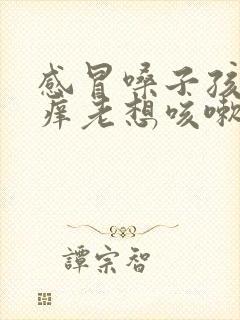 感冒嗓子孩
痒老想咳嗽
譚宗智